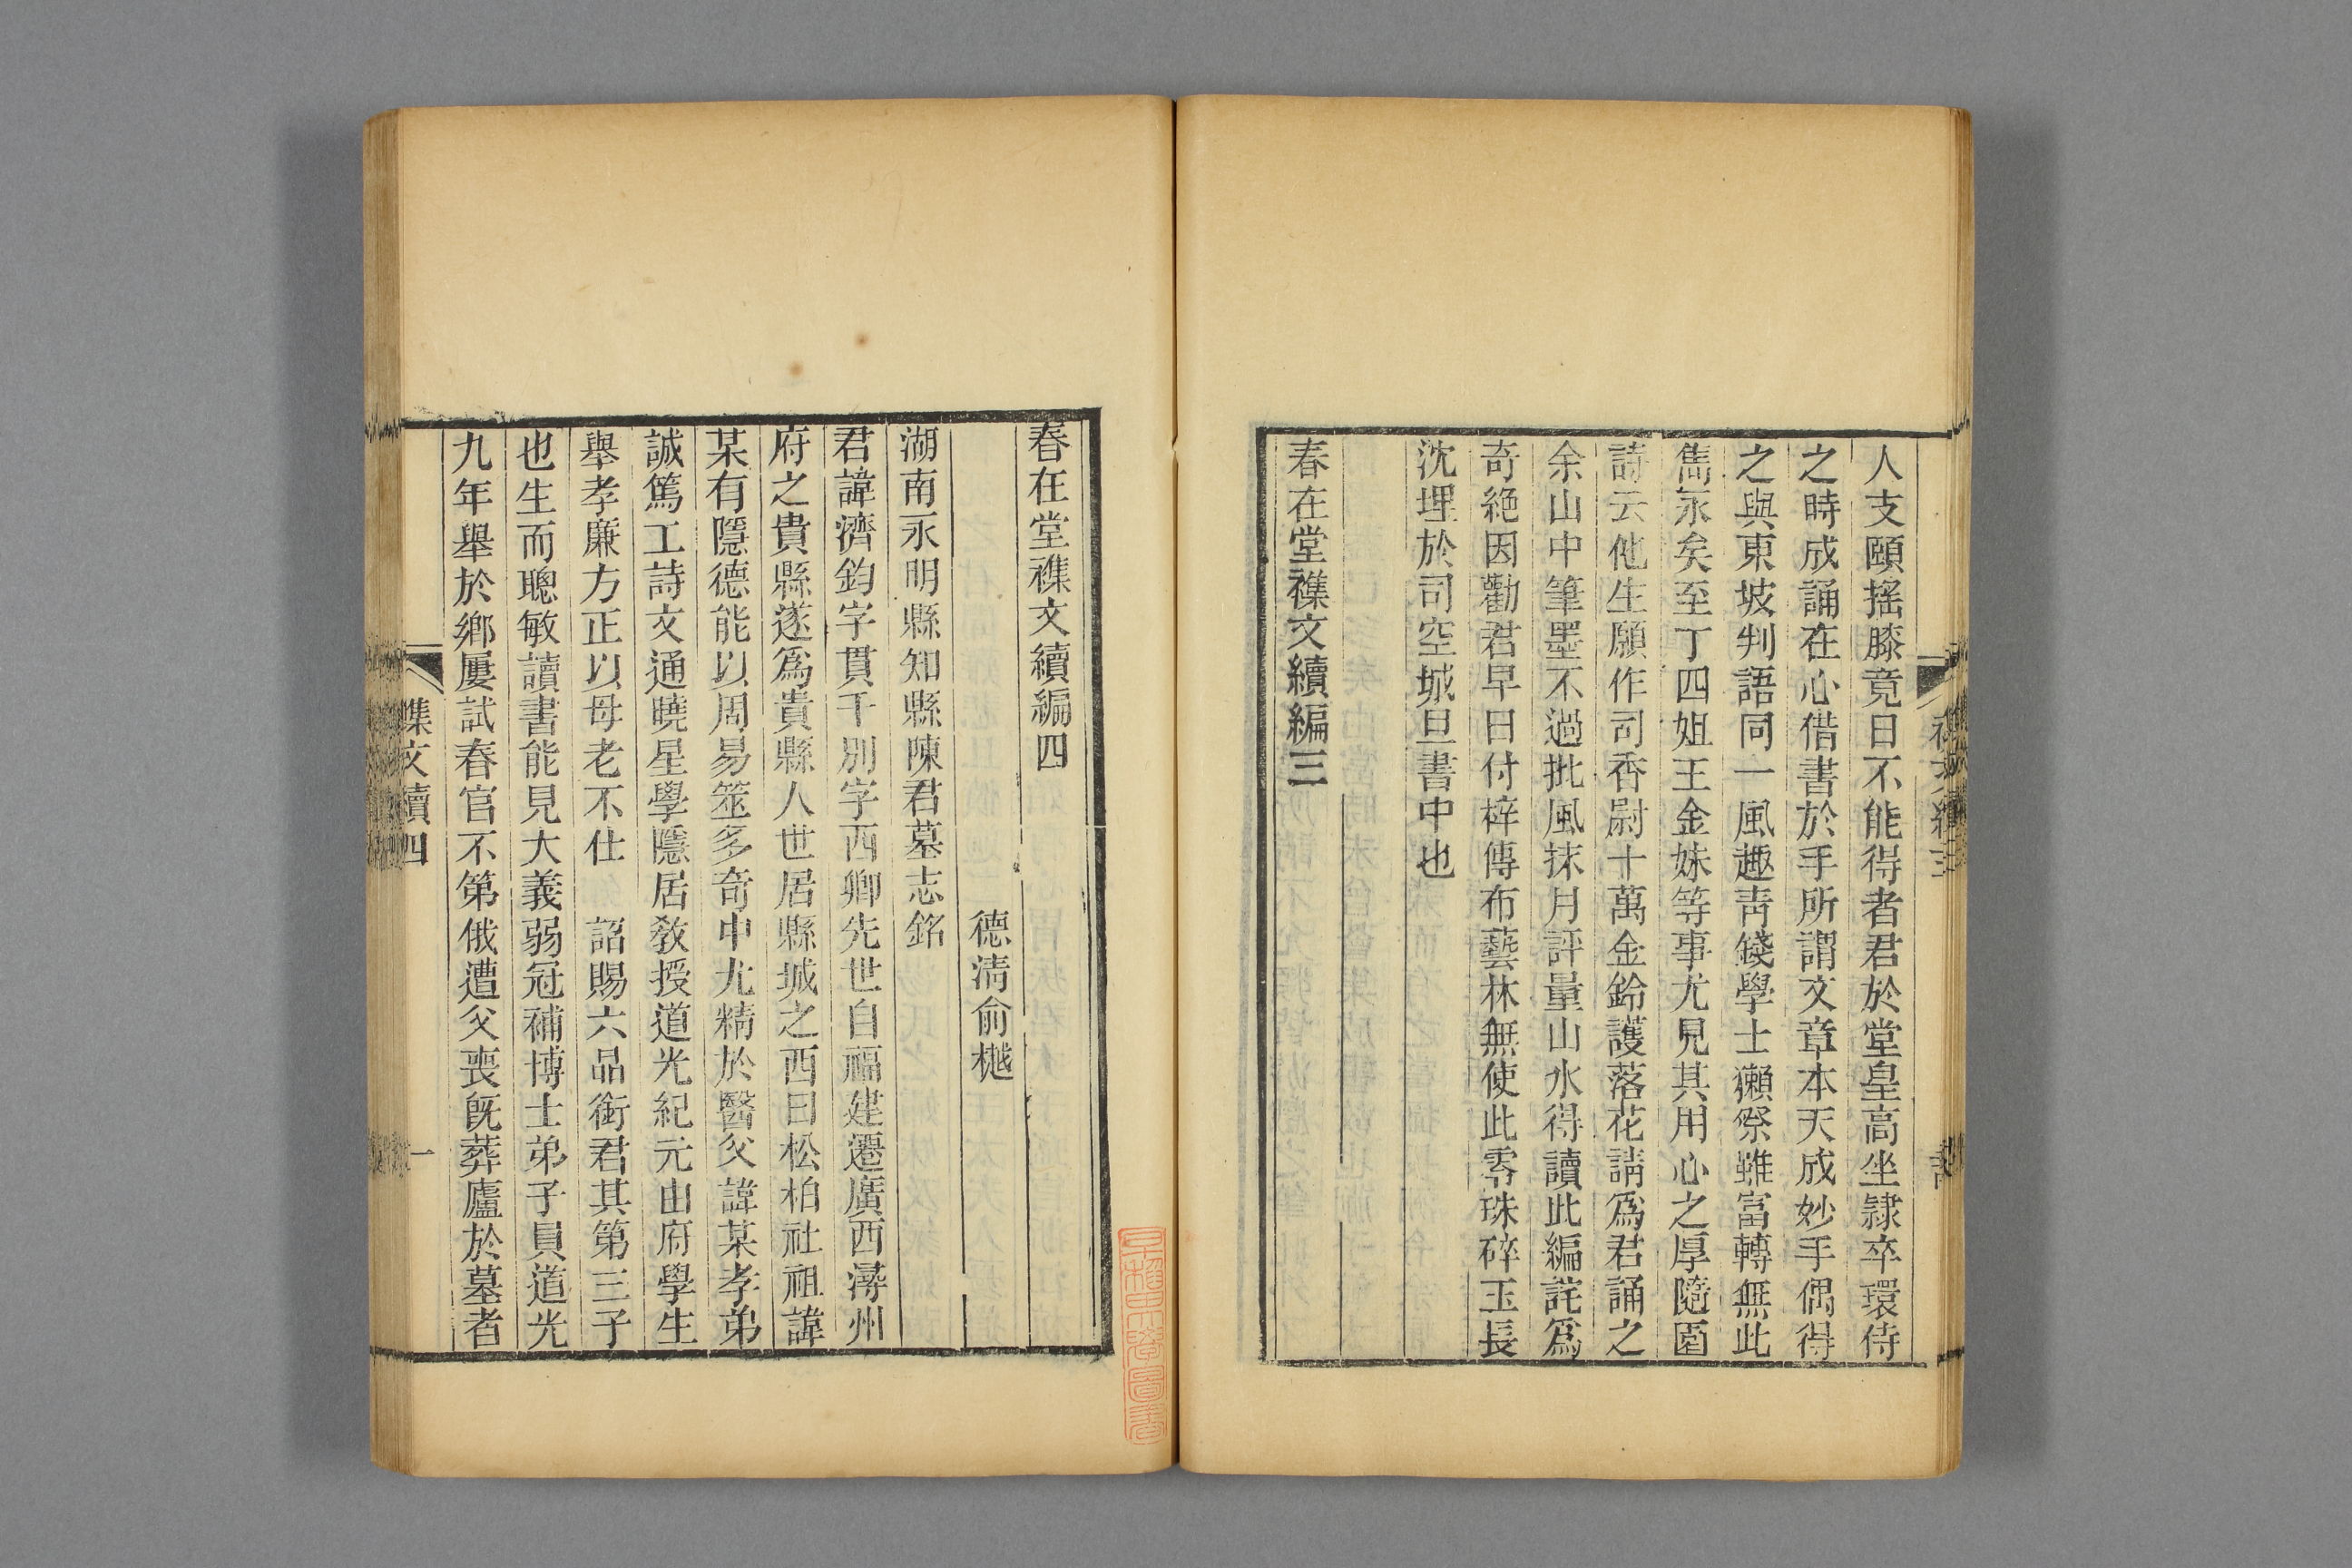 人支頤搖膝竟日不能得者君於堂皇高坐隷卒環侍
之時成誦在心借書於手所謂文章本天成妙手偶得
之與東坡判語同一風趣靑錢學士獺祭雖富轉無此
雋永矣至丁四姐王金妹等事尤見其用心之厚隨園
詩云他生願作司香尉十萬金鈴護落花請爲君誦之
余山中筆墨不過批風抹月評量山水得讀此編詫爲
奇絕因勸君早日付梓傳布藝林無使此零珠碎玉長
沈埋於司空城旦書中也
春在堂襍文續編三
春在堂襍文續編四
德淸俞樾
湖南永明縣知縣陳君墓志銘
君諱濟鈞字貫千別字西卿先世自福建遷廣西潯州
府之貴縣遂爲貴縣人世居縣城之西曰松柏社祖諱
某有隱德能以周易筮多奇中尤精於醫父諱某孝弟
誠篤工詩文通曉星學隱居敎授道光紀元由府學生
舉孝廉方正以母老不仕　詔賜六品銜君其第三子
也生而聰敏讀書能見大義弱冠補博士弟子員道光
九年舉於鄕屢試春官不第俄遭父喪旣葬廬於墓者
文續四
一